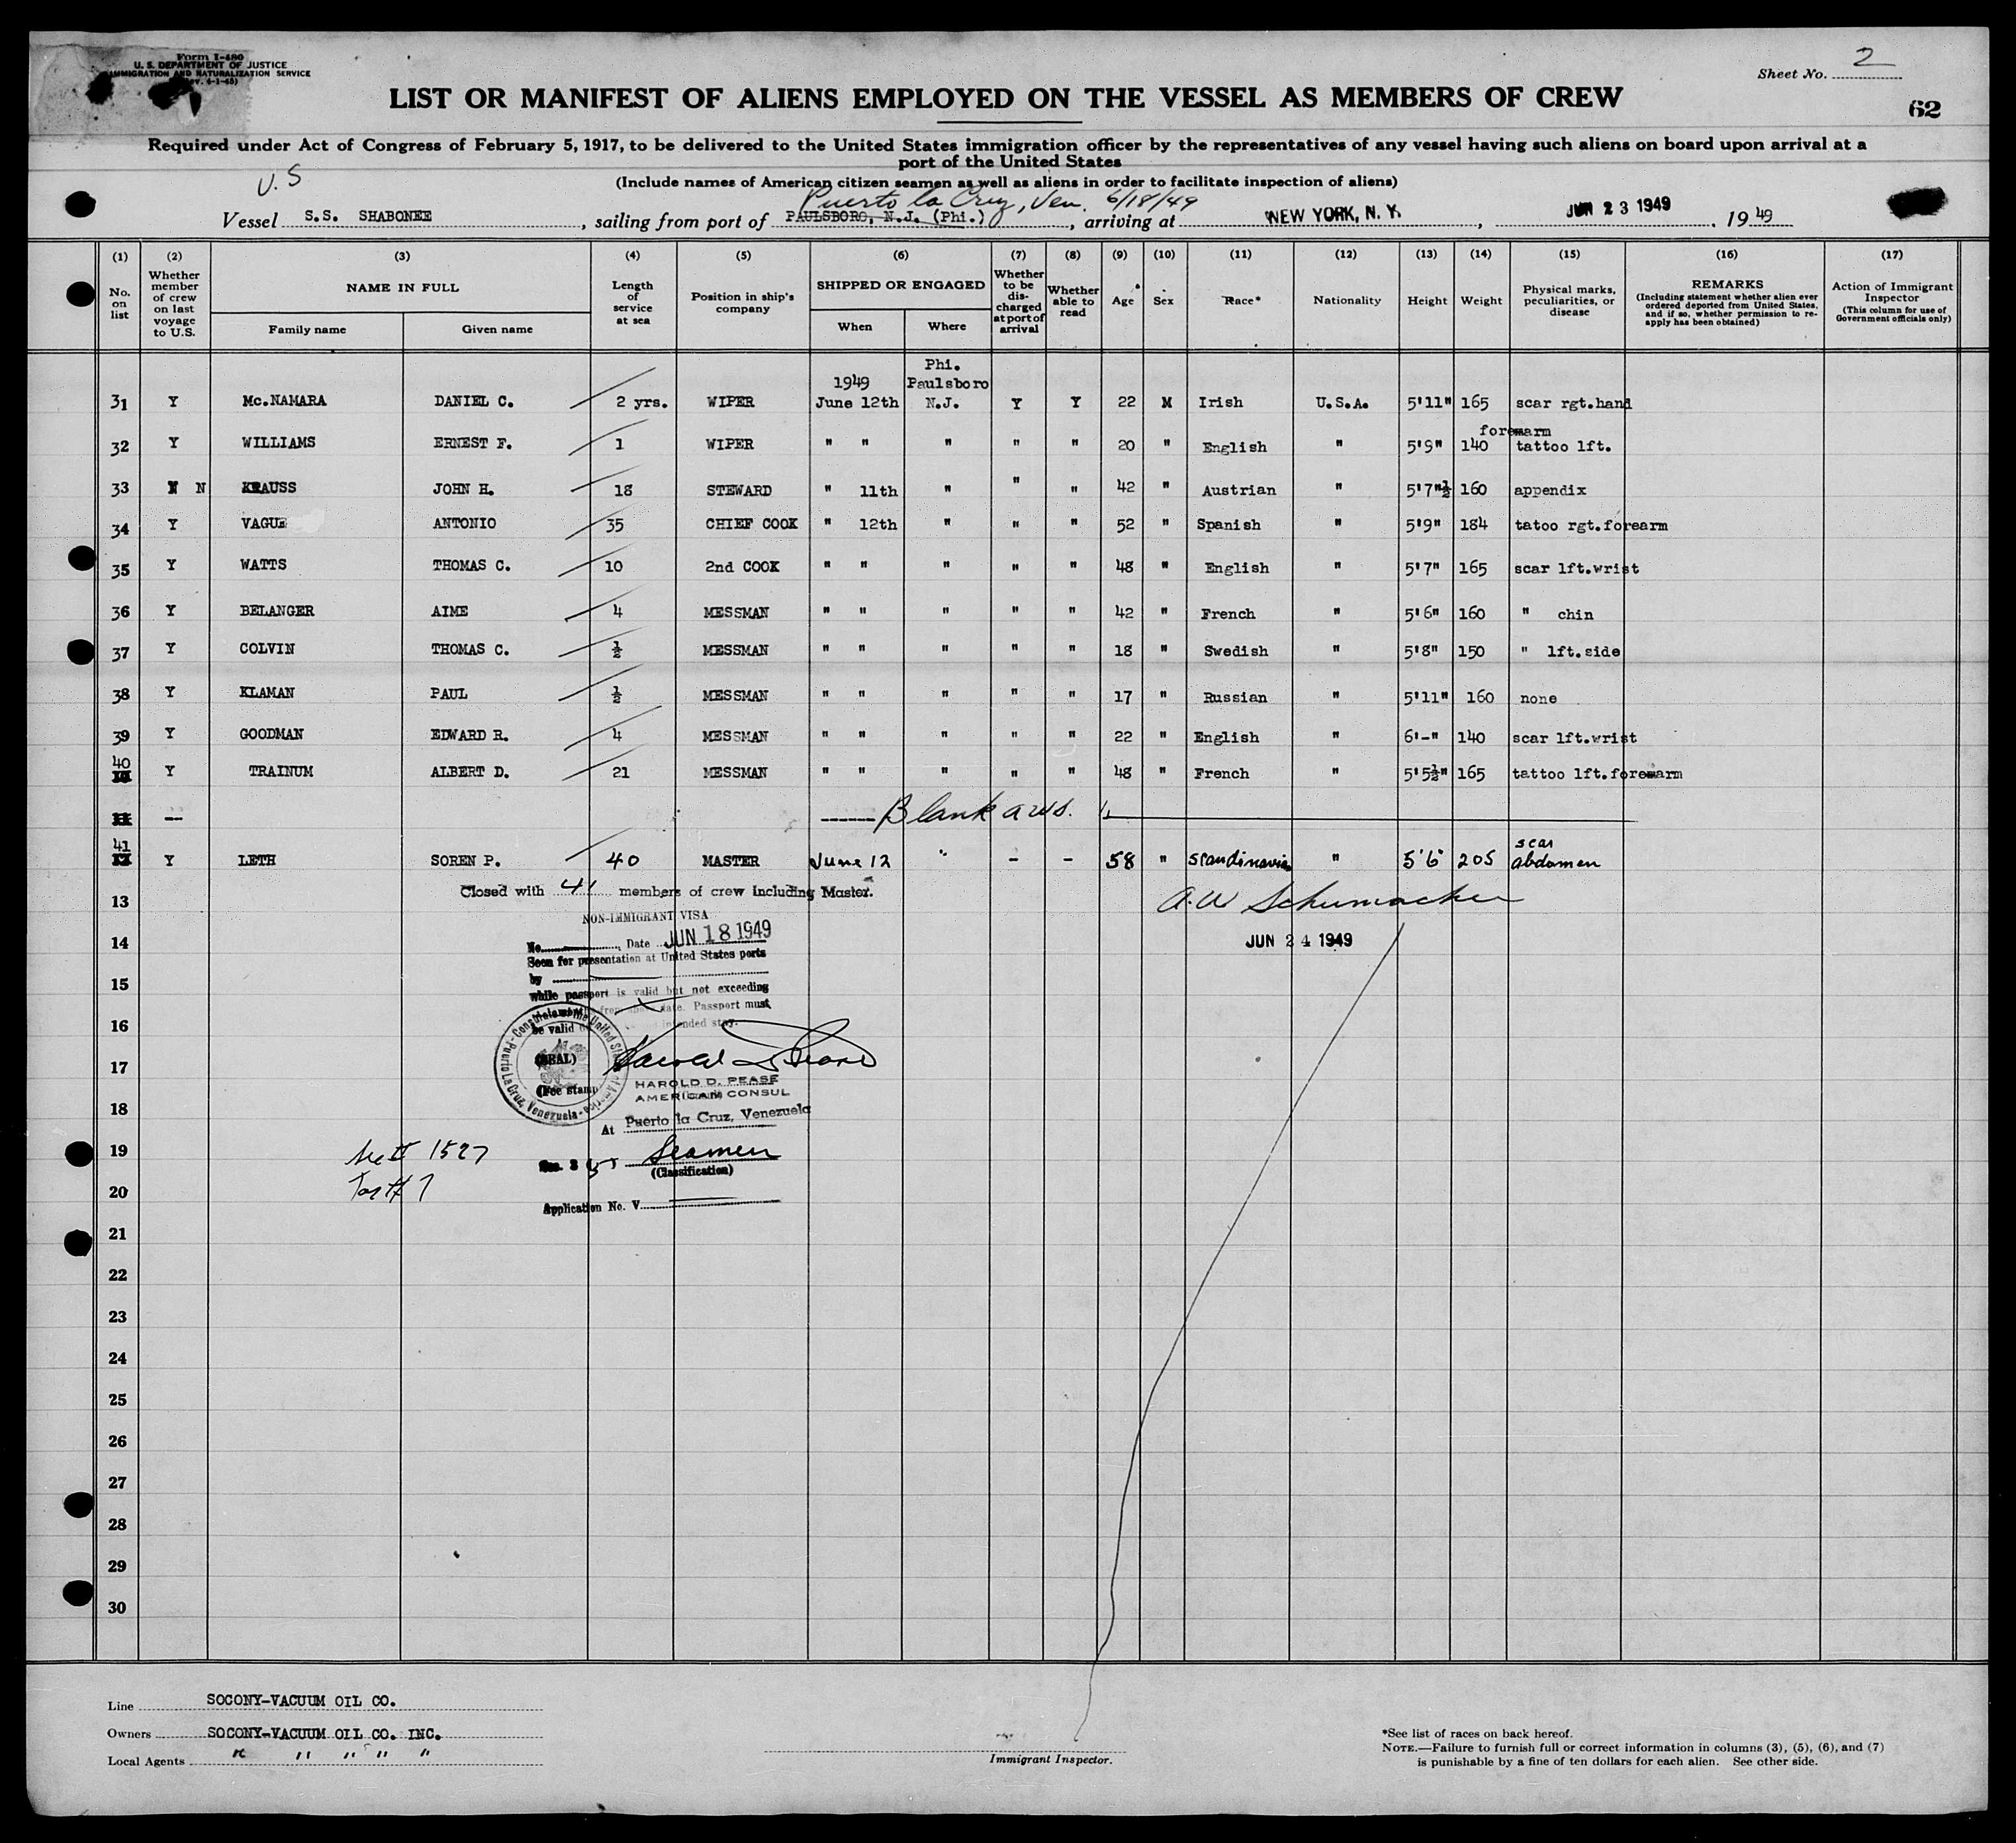 Form I-480
U. S. DEPARTMENT OF JUSTICE
IMMIGRATION AND NATURALIZATION SERVICE
(Rev. 4-1-45)
Sheet No. 2
LIST OR MANIFEST OF ALIENS EMPLOYED ON THE VESSEL AS MEMBERS OF CREW
62
Required under Act of Congress of February 5, 1917, to be delivered to the United States immigration officer by the representatives of any vessel having such aliens on board upon arrival at a
port of the United States
U.S
(Include names of American citizen seamen as well as aliens in order to facilitate inspection of aliens)
Puerto la Cruz, Ven. 6/18/49
Vessel S.S. SHABONEE, sailing from port of PAULSBORO, N.J. (Phi.), arriving at NEW YORK, N. Y., JUN 23 1949, 1949
(1) (2) (3) (4) (5) (6) (7) (8) (9) (10) (11) (12) (13) (14) (15) (16) (17)
No. on list
Whether member of crew on last voyage to U.S.
NAME IN FULL
Family name Given name
Length of service at sea
Position in ship's company
SHIPPED OR ENGAGED
When Where
Whether to be discharged at port of arrival
Whether able to read
Age Sex Race* Nationality Height Weight
Physical marks, peculiarities, or disease
REMARKS
(Including statement whether alien ever ordered deported from United States, and if so, whether permission to re-apply has been obtained)
Action of Immigrant Inspector
(This column for use of Government officials only)
Phi.
1949 Paulsboro
31 Y Mc.NAMARA DANIEL C. 2 yrs. WIPER June 12th N.J. Y Y 22 M Irish U.S.A. 5'11" 165 scar rgt.hand
forearm
32 Y WILLIAMS ERNEST F. 1 WIPER " " " " " 20 " English " 5'9" 140 tattoo lft.
33 N KRAUSS JOHN H. 18 STEWARD " 11th " " " 42 " Austrian " 5'7"½ 160 appendix
34 Y VAGUE ANTONIO 35 CHIEF COOK " 12th " " " 52 " Spanish " 5'9" 184 tatoo rgt.forearm
35 Y WATTS THOMAS C. 10 2nd COOK " " " " " 48 " English " 5'7" 165 scar lft.wrist
36 Y BELANGER AIME 4 MESSMAN " " " " " 42 " French " 5'6" 160 " chin
37 Y COLVIN THOMAS C. ½ MESSMAN " " " " " 18 " Swedish " 5'8" 150 " lft.side
38 Y KLAMAN PAUL ½ MESSMAN " " " " " 17 " Russian " 5'11" 160 none
39 Y GOODMAN EDWARD R. 4 MESSMAN " " " " " 22 " English " 6'-" 140 scar lft.wrist
40 Y TRAINUM ALBERT D. 21 MESSMAN " " " " " 48 " French " 5'5½" 165 tattoo lft.forearm
11 -- Blank
scar
41 Y LETH SOREN P. 40 MASTER June 12 " - - 58 " Scandinavian " 5'6" 205 abdomen
Closed with 41 members of crew including Master.
13
A.W Schumacher
NON-IMMIGRANT VISA
14
No. , Date JUN 18 1949
JUN 24 1949
Seen for presentation at United States ports
15
by
while passport is valid but not exceeding
from above date. Passport must
16
be valid intended stay.
Harold D Pease
17
(SEAL)
HAROLD D. PEASE
(Fee stamp)
AMERICAN CONSUL
Puerto La Cruz, Venezuela
18
At Puerto la Cruz, Venezuela
19
1527
Seamen
(Classification)
20
Application No. V
21
22
23
24
25
26
27
28
29
30
Line SOCONY-VACUUM OIL CO.
Owners SOCONY-VACUUM OIL CO. INC.
Local Agents " " " " "
Immigrant Inspector.
*See list of races on back hereof.
NOTE.—Failure to furnish full or correct information in columns (3), (5), (6), and (7)
is punishable by a fine of ten dollars for each alien. See other side.